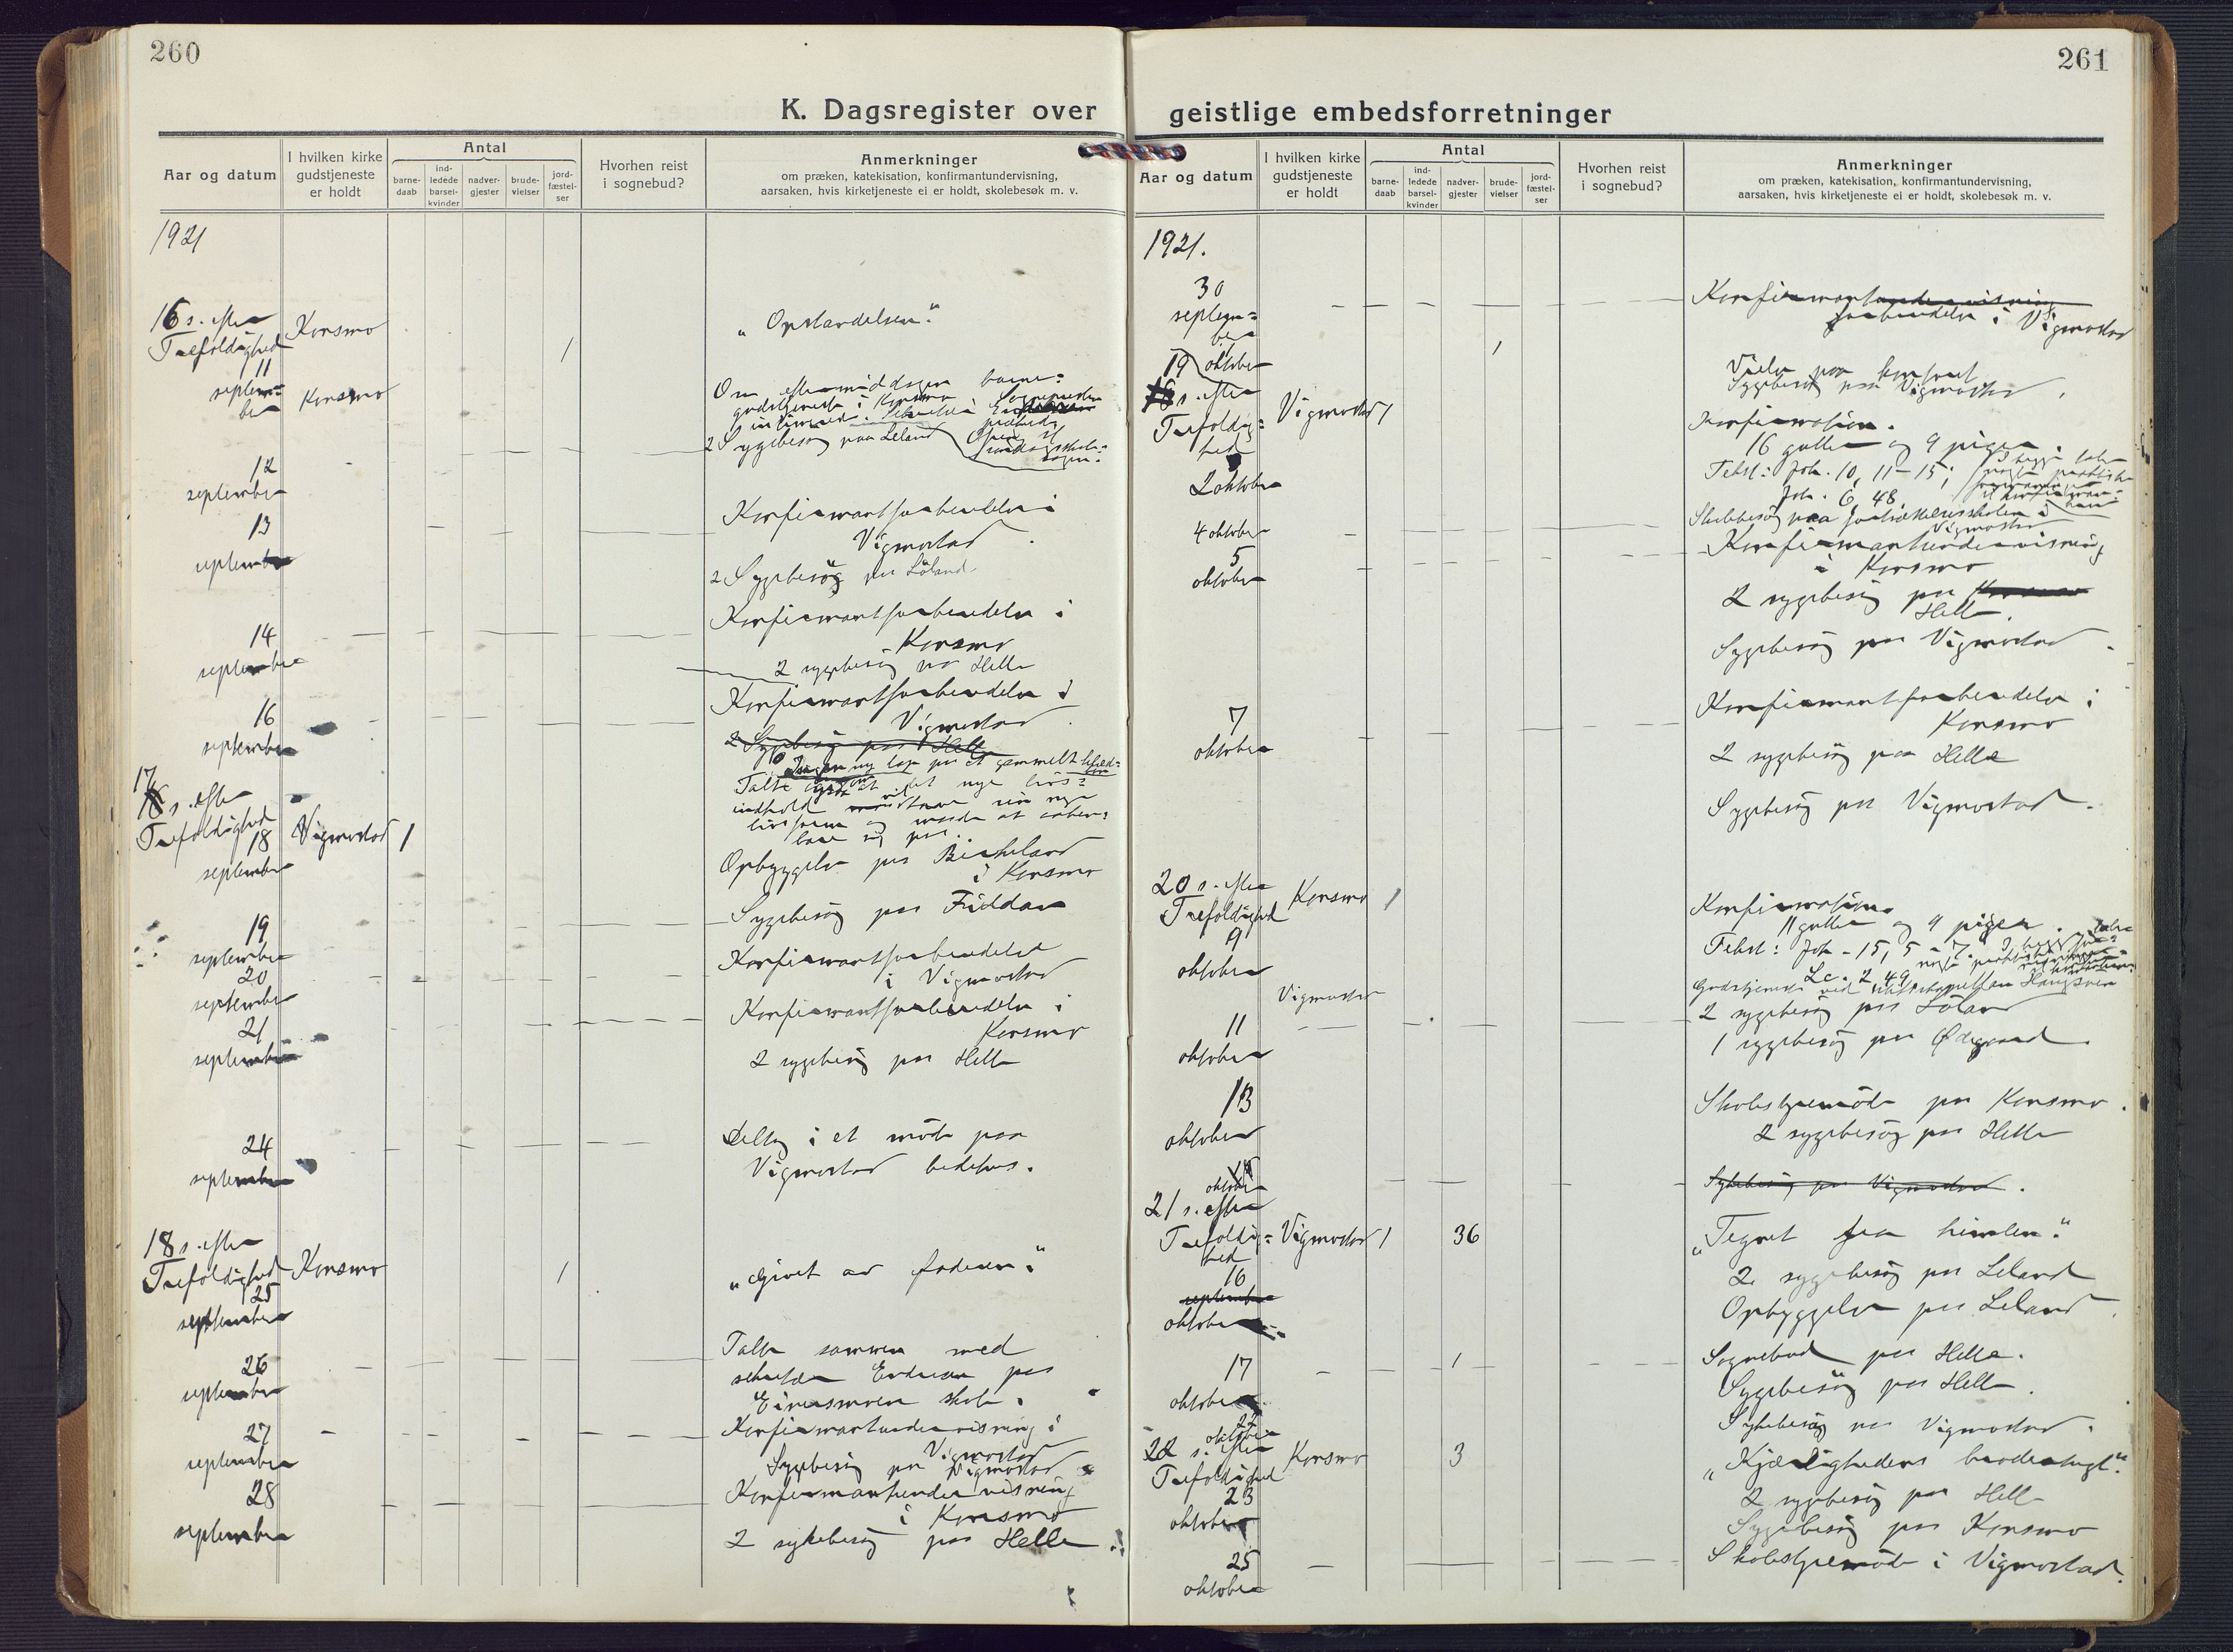 260
K. Dagsregister over
Aar og datum
I hvilken kirke gudstjeneste er holdt
Antal
barnedaab
indledede barselkvinder
nadvergjester
brudevielser
jordfæstelser
Hvorhen reist i sognebud?
Anmerkninger
om præken, katekisation, konfirmantundervisning,
aarsaken, hvis kirketjeneste ei er holdt, skolebesøk m. v.
1921
16 s. efter
Trefoldighed Konsmo 1 „Opstandelsen."
11
septem=
ber Konsmo
Om eftermiddagen barne=
gudstjeneste i Konsmo
2 Sygebesøg paa Leland
12
september
Konfirmantforberedelse i
Vigmostad
13
september
2 Sygebesøg paa Löland
Konfirmantforberedelse i
Konsmo
14
september
2 sygebesøg paa Helle
Konfirmantforberedelse i
Vigmostad
16
september
2 Sygebesøg paa Helle
Talte
det nye livs=
indhold
17 s. efter
Trefoldighed
18
september Vigmostad 1
Opbyggelse paa Birkeland
i Konsmo
Sygebesøg paa Fiddan
19
september
Konfirmantforberedelse
i Vigmostad
20
september
Konfirmantforberedelse i
Konsmo
21
september
2 sygebesøg paa Helle
24
september
Deltog i et møte paa
Vigmostad bedehus.
18 s. efter
Trefoldighed
25
september Konsmo 1 „Givet av faderen."
26
september
Talte sammen med
paa
skole.
27
september
Konfirmantundervisning i
Vigmostad
Sygebesøg paa Vigmostad
28
september
Konfirmantundervisning
i Konsmo
2 sykebesøg paa Helle.
261
geistlige embedsforretninger
Aar og datum
I hvilken kirke gudstjeneste er holdt
Antal
barnedaab
indledede barselkvinder
nadvergjester
brudevielser
jordfæstelser
Hvorhen reist i sognebud?
Anmerkninger
om præken, katekisation, konfirmantundervisning,
aarsaken, hvis kirketjeneste ei er holdt, skolebesøk m. v.
1921.
30
septem=
ber
Konfirmantundervisning
forberedelse i Vigmostad
1 oktober 1
Vielse paa kontoret
Sygebesøg paa Vigmostad.
19 s. efter
Trefoldig=
hed
2 oktober Vigmostad 1
Konfirmation.
16 gutter og 9 piger.
Tekst: Joh. 10, 11–15;
Joh. 6, 48
4 oktober
Skolebesøg paa fortsættelsesskolen i
Vigmostad
5
oktober
Konfirmantundervisning
i Konsmo
2 sygebesøg paa
Helle.
Sygebesøg paa Vigmostad.
7
oktober
Konfirmantforberedelse i
Konsmo
2 sygebesøg paa Helle
Sygebesøg paa Vigmostad.
20 s. efter
Trefoldighed
9
oktober Konsmo 1
Konfirmation.
11 gutter og 9 piger.
Tekst: Joh. 15, 5
Lc. 2, 49
Vigmostad
Gudstjeneste ved
11
oktober
2 sygebesøg paa Löland
1 sygebesøg paa Ødegaard
13
oktober
Skolestyremøde paa Konsmo.
2 sygebesøg paa Helle
oktober
Sykebesøg paa Vigmostad.
21 s. efter
Trefoldig=
hed
16
september
oktober Vigmostad 1 36
„Tegnet fra himlen."
2 sygebesøg paa Leland
Opbyggelse paa Leland.
17
oktober 1
Sognebud paa Helle.
Sygebesøg paa Helle.
22
oktober
Sykebesøg paa Vigmostad.
22 s. efter
Trefoldighed
23
oktober Konsmo 3
„Kjærlighedens
2 sygebesøg paa Helle
Sygebesøg paa Konsmo
25
oktober
Skolestyremøde i Vigmostad.